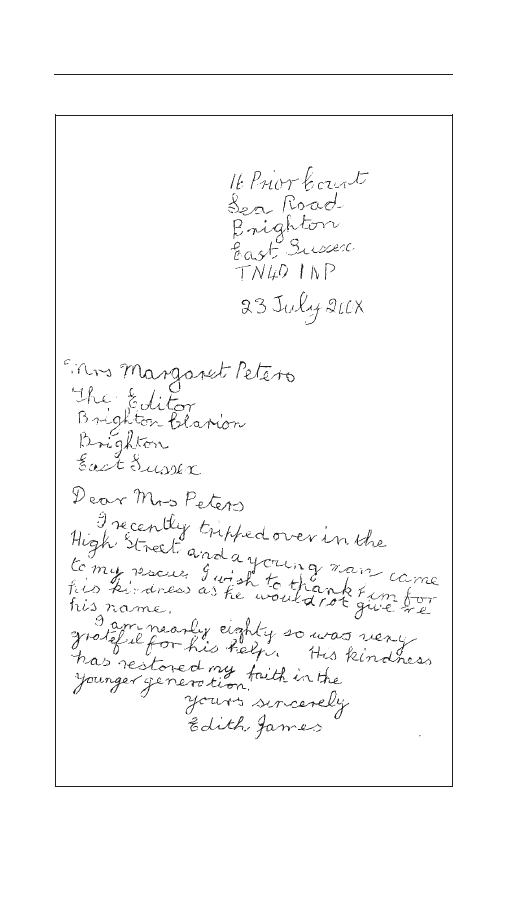 16 Prior Court
Sea Road
Brighton
East Sussex
TN40 1NP
23 July 200X
Mrs Margaret Peters
The Editor
Brighton Clarion
Brighton
East Sussex
Dear Mrs Peters
I recently tripped over in the
High Street and a young man came
to my rescue. I wish to thank him for
his kindness as he would not give me
his name.
I am nearly eighty so was very
grateful for his help. His kindness
has restored my faith in the
younger generation.
yours sincerely
Edith James